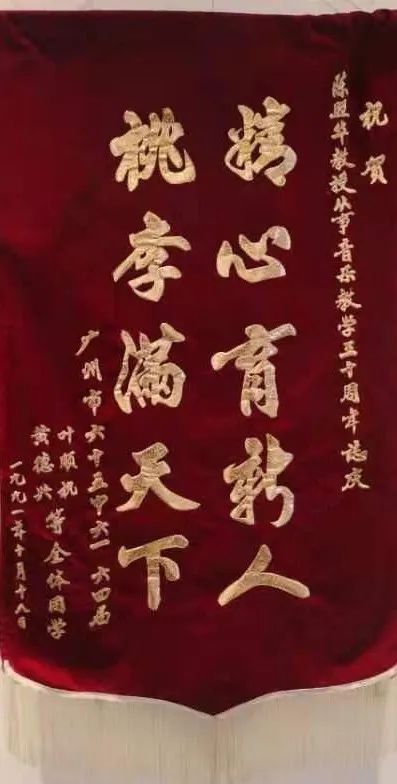 祝贺
陈照华教授从事音乐教学五十周年志庆
精心育新人
桃李满天下
广州市六十五中六一六四届
叶顺礼
黄德兴等全体同学
一九九一年十月十九日